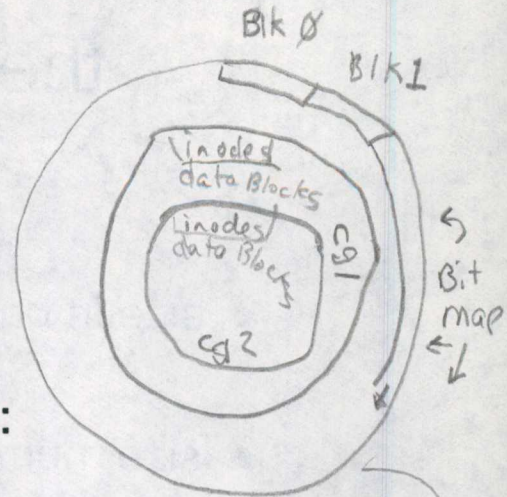 Blk 0
Blk 1
inodes
data Blocks
inodes
data Blocks
cg1
cg2
Bit
map
: